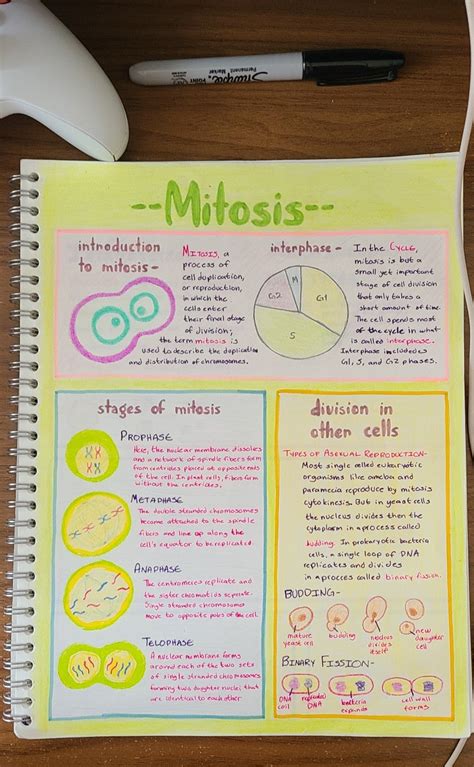 Sharpie
Permanent Marker
--Mitosis--
introduction
to mitosis-
MITOSIS, a
process of
cell duplication,
or reproduction,
in which the
cells enter
their final stage
of division;
the term mitosis is
used to describe the duplication
and distribution of chromosomes.
interphase-
M
G2
G1
S
In the CYCLE,
mitosis is but a
small yet important
stage of cell division
that only takes a
short amount of time.
The cell spends most
of the cycle in what
is called interphase.
Interphase includes
G1, S, and G2 phases.
stages of mitosis
PROPHASE
Here, the nuclear membrane dissolves
and a network of spindle fibers form
from centrioles placed at opposite ends
of the cell. In plant cells, fibers form
without the centrioles.
METAPHASE
The double stranded chromosomes
become attached to the spindle
fibers and line up along the
cell's equator to be replicated.
ANAPHASE
The centromeres replicate and
the sister chromatids seperate.
Single stranded chromosomes
move to opposite poles of the cell.
TELOPHASE
A nuclear membrane forms
around each of the two sets
of single stranded chromosomes
forming two daughter nuclei that
are identical to each other
division in
other cells
TYPES OF ASEXUAL REPRODUCTION-
Most single celled eukaryotic
organisms like ameba and
paramecia reproduce by mitosis
cytokinesis. But in yeast cells
the nucleus divides then the
cytoplasm in a process called
budding. In prokaryotic bacteria
cells, a single loop of DNA
replicates and divides
in a process called binary fission.
BUDDING-
mature
yeast cell
budding
nucleus
divides
itself
new
daughter
cell
BINARY FISSION-
DNA
coil
replicated
DNA
bacteria
expands
cell wall
forms